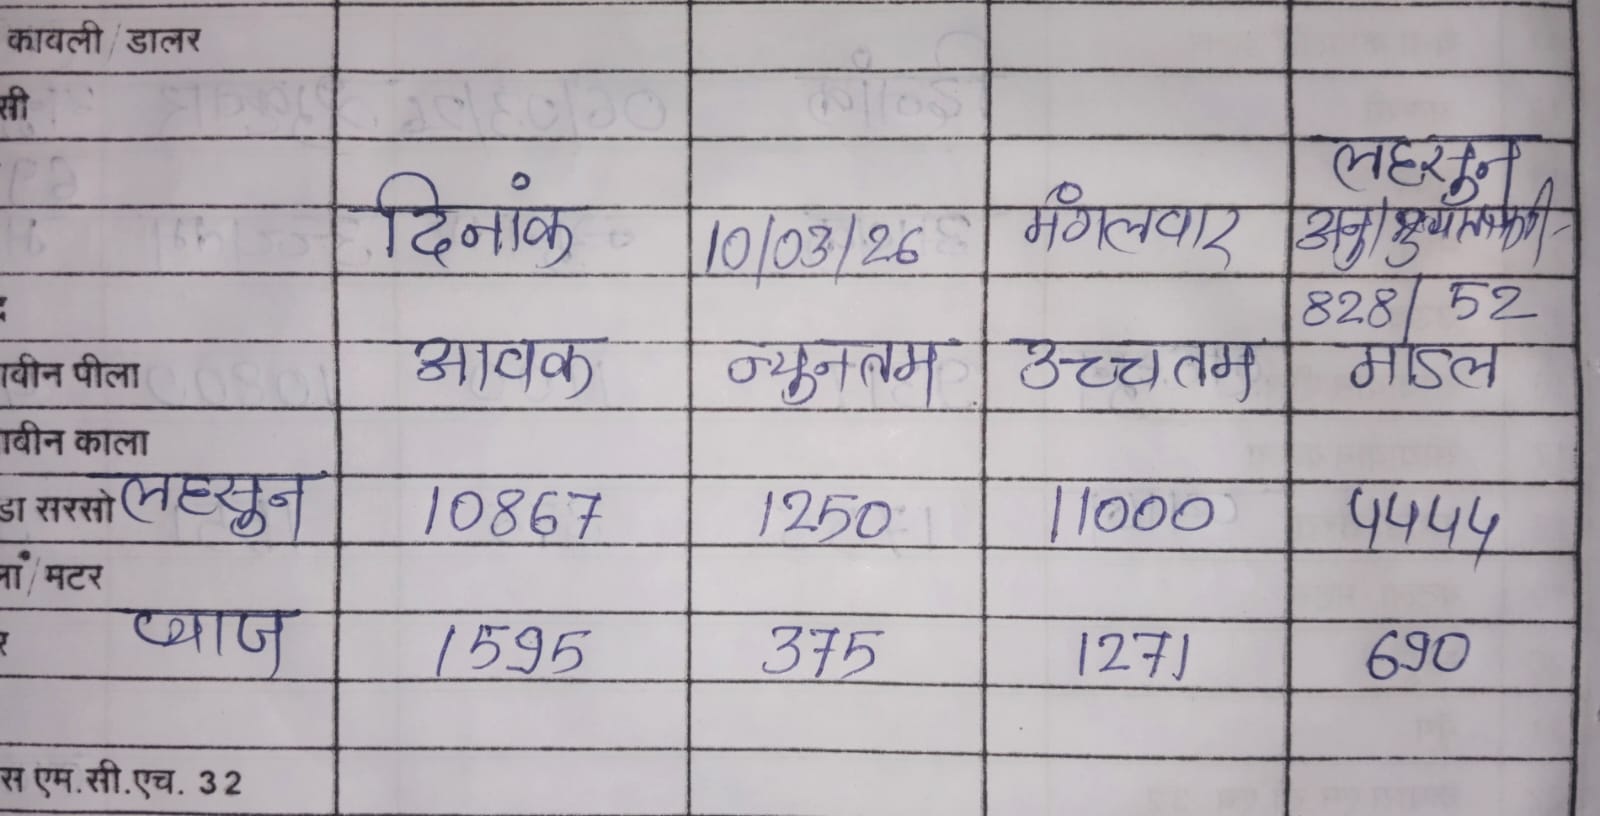 कावली/डालर
सी
लहसुन
दिनांक 10/03/26 मंगलवार अनु/
828/52
ाबीन पीला आवक न्यूनतम उच्चतम माडल
ाबीन काला
डा सरसो लहसुन 10867 1250 11000 4444
/मटर
र प्याज 1595 375 1271 690
स एम.सी.एच. 32